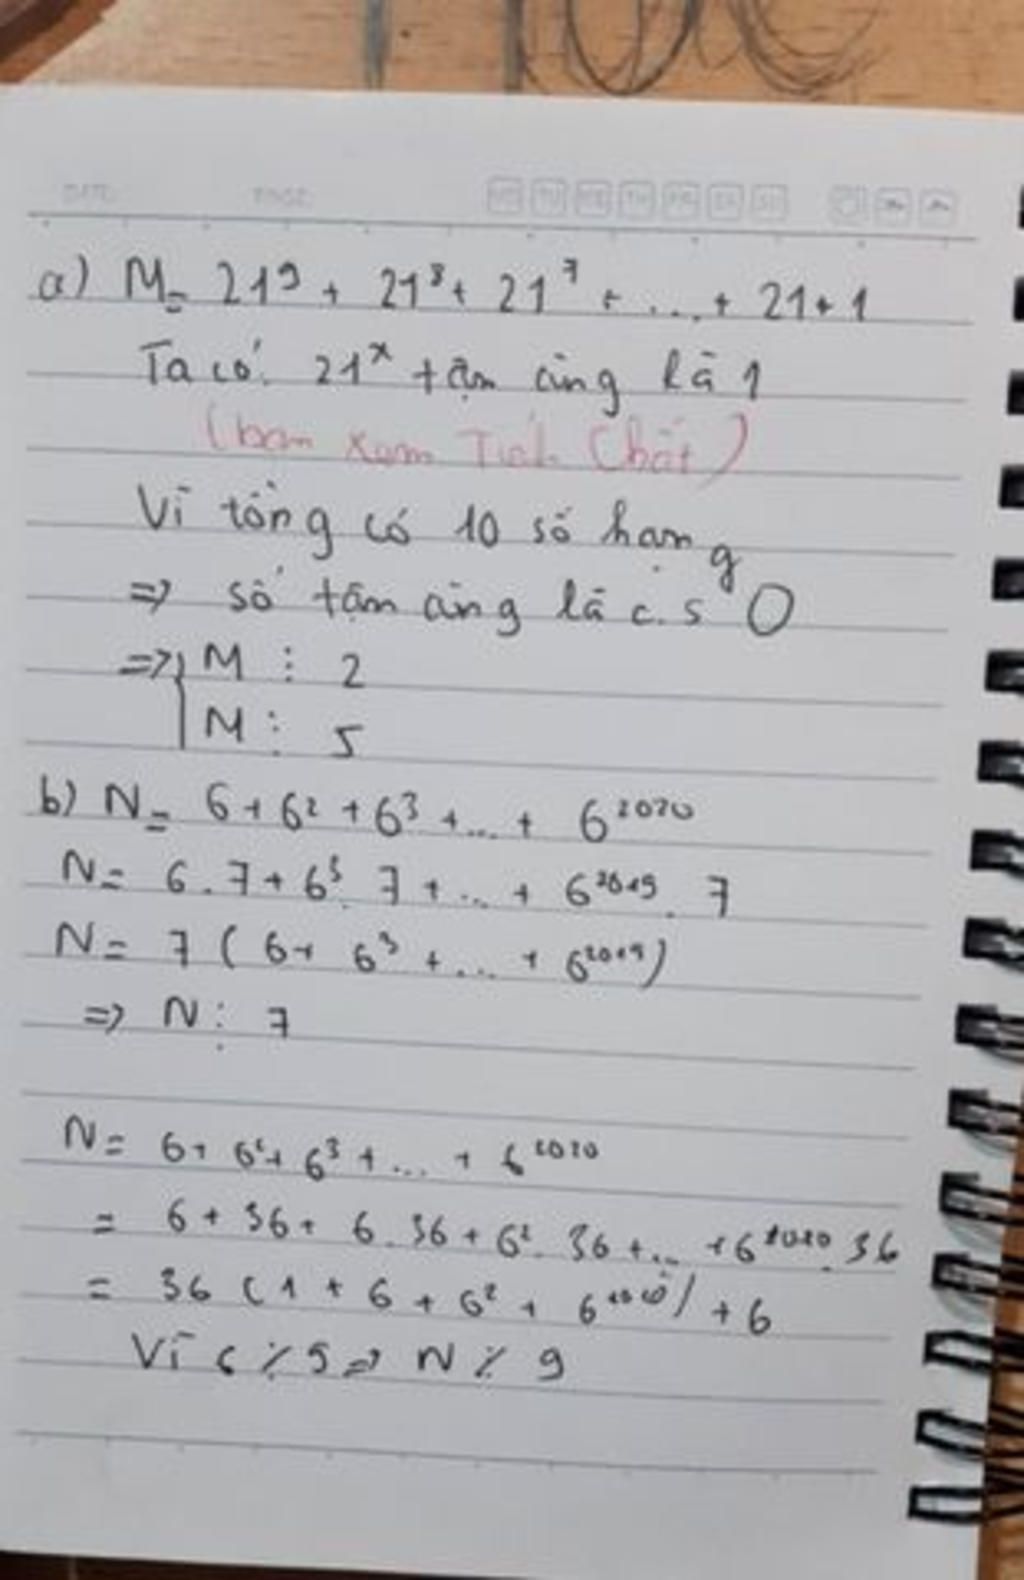 DATE: PAGE: MO TU WE TH FR SA SU
a) M = 21⁹ + 21⁸ + 21⁷ + ... + 21 + 1
Ta có: 21ˣ tận cùng là 1
(bạn xem Tính Chất)
Vì tổng có 10 số hạng
=> số tận cùng là c.s 0
=> M ⋮ 2
M ⋮ 5
b) N = 6 + 6² + 6³ + ... + 6²⁰²⁰
N = 6.7 + 6³.7 + ... + 6²⁰¹⁹.7
N = 7 (6 + 6³ + ... + 6²⁰¹⁹)
=> N ⋮ 7
N = 6 + 6² + 6³ + ... + 6²⁰²⁰
= 6 + 36 + 6.36 + 6².36 + ... + 6²⁰²⁰.36
= 36 (1 + 6 + 6² + ) + 6
Vì 6 ⋮̸ 9 => N ⋮̸ 9